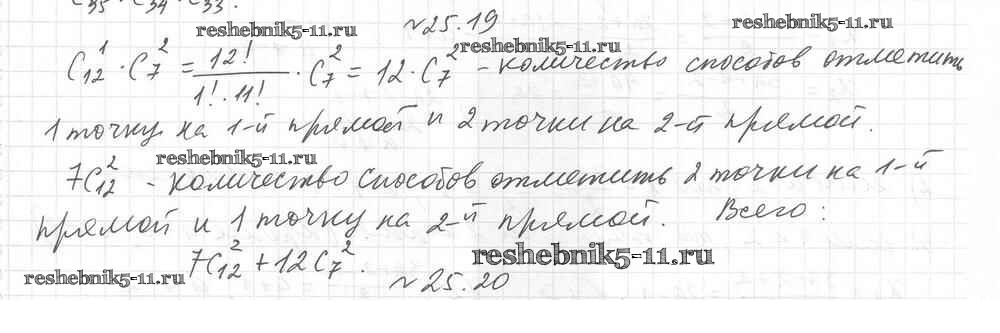 C₃₅ · C₃₄ · C₃₃.
reshebnik5-11.ru №25.19 reshebnik5-11.ru
C₁₂¹ · C₇² = 12! / 1! · 11! · C₇² = 12 · C₇² - количество способов отметить
reshebnik5-11.ru
1 точку на 1-й прямой и 2 точки на 2-й прямой.
reshebnik5-11.ru
7C₁₂² - количество способов отметить 2 точки на 1-й
прямой и 1 точку на 2-й прямой. Всего:
7C₁₂² + 12C₇². reshebnik5-11.ru
reshebnik5-11.ru №25.20